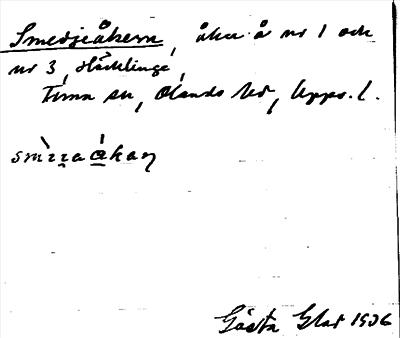 Smedjeåkern, åker å nr 1 och
nr 3, Häcklinge,
Tuna sn, Olands hd, Upps. l.
Gösta Glad 1906